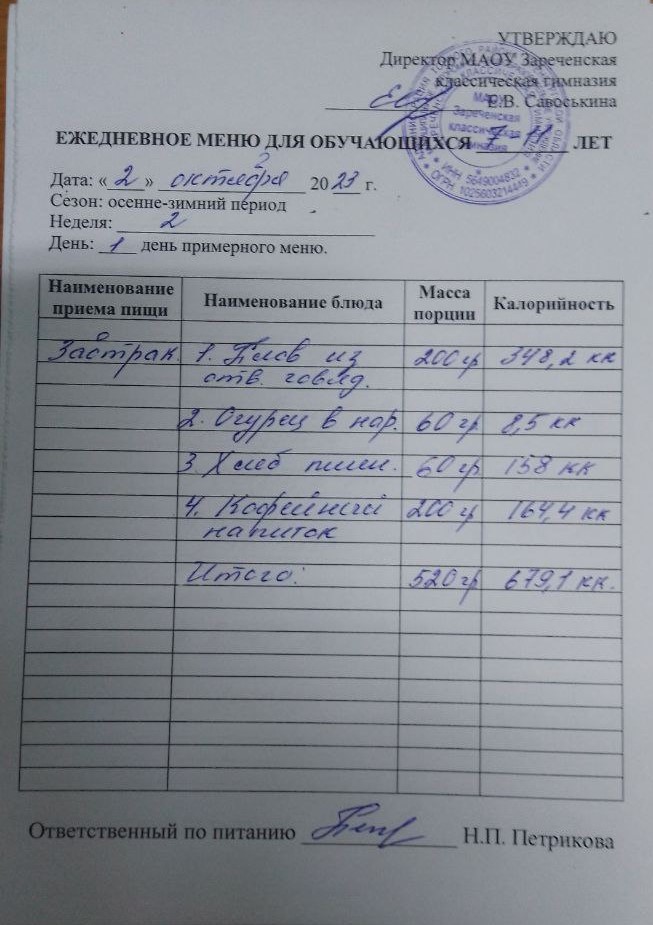 УТВЕРЖДАЮ
Директор МАОУ Зареченская
классическая гимназия
Е.В. Савоськина
МАОУ
Зареченская
классическая
гимназия
ИНН 5649004832
ОГРН 1025603214449
ЕЖЕДНЕВНОЕ МЕНЮ ДЛЯ ОБУЧАЮЩИХСЯ 7-11 ЛЕТ
Дата: «2» октября 2023 г.
Сезон: осенне-зимний период
Неделя: 2
День: 1 день примерного меню.
Наименование приема пищи Наименование блюда Масса порции Калорийность
Завтрак. 1. Плов из 200 гр 348,2 кк
отв. говяд.
2. Огурец в нар. 60 гр 8,5 кк
3. Хлеб пшен. 60 гр 158 кк
4. Кофейный 200 гр 164,4 кк
напиток
Итого: 520 гр 679,1 кк.
Ответственный по питанию Н.П. Петрикова